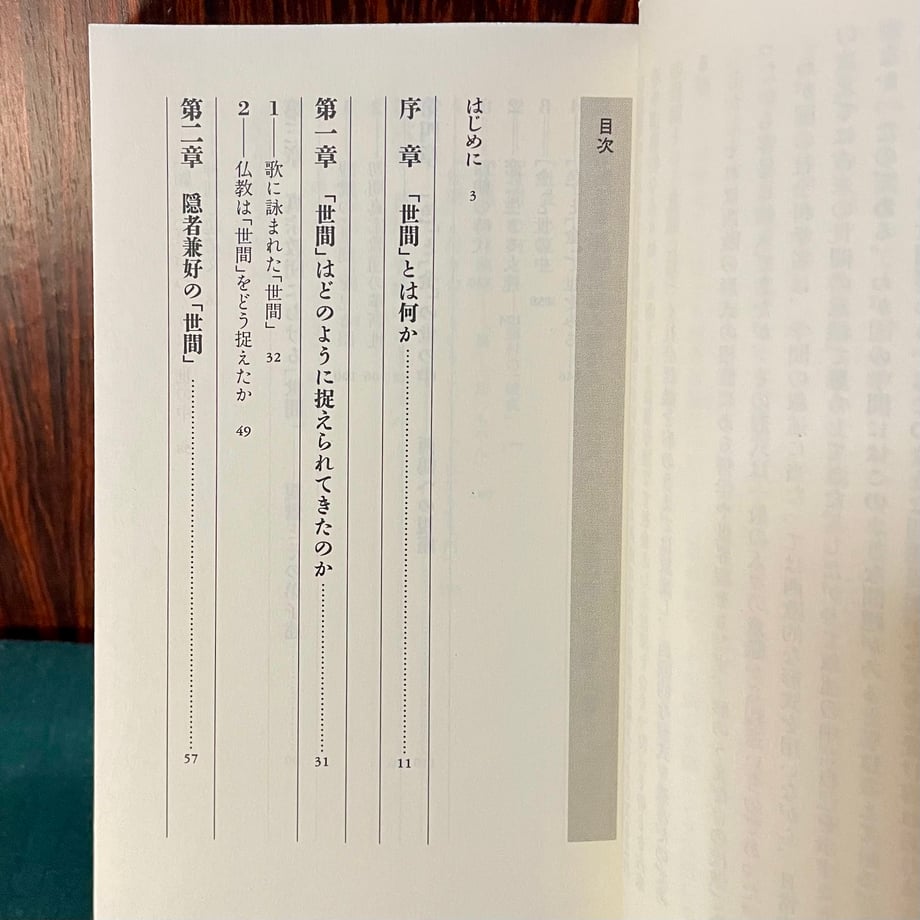 目次
はじめに 3
序 章 「世間」とは何か……………………………11
第一章 「世間」はどのように捉えられてきたのか……………31
1――歌に詠まれた「世間」 32
2――仏教は「世間」をどう捉えたか 49
第二章 隠者兼好の「世間」……………………………57